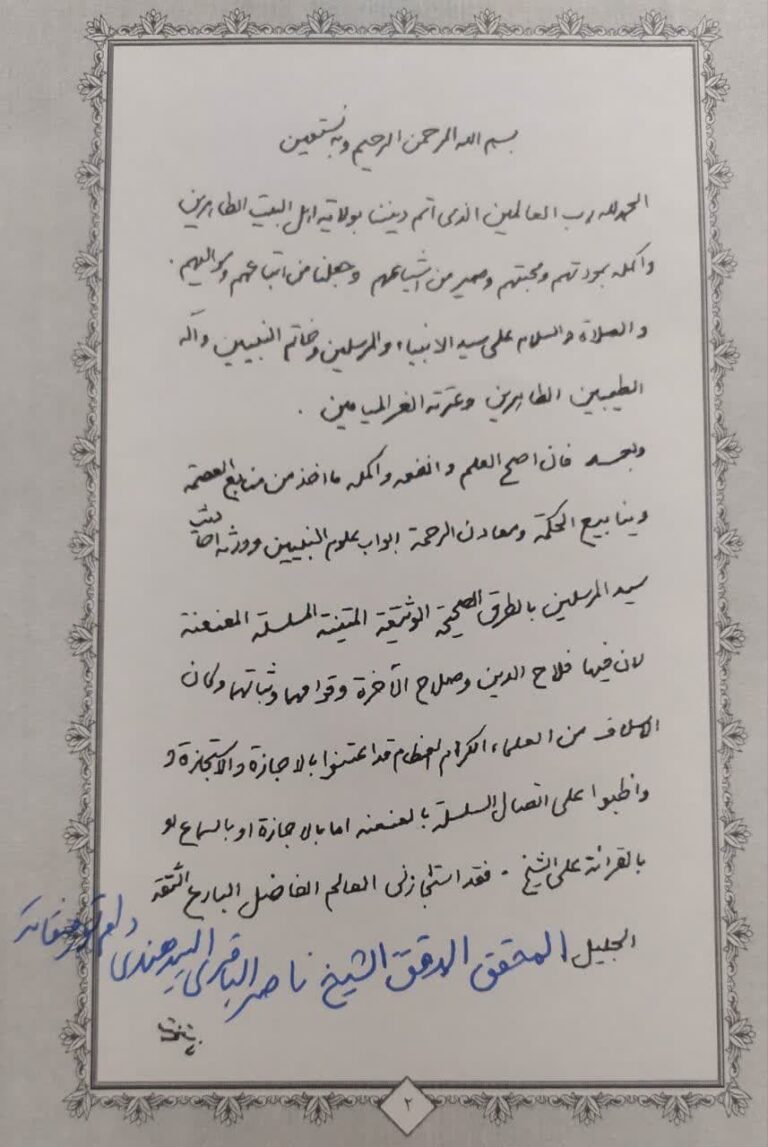 بسم الله الرحمن الرحيم وبه نستعين
الحمدلله رب العالمين الذى اتم ديننا بولاية اهل البيت الطاهرين
واكمله بمودتهم ومحبتهم وصير من اشياعهم وجعلنا من اتباعهم ومواليهم .
والصلاة والسلام على سيد الانبياء والمرسلين وخاتم النبيين وآله
الطيبين الطاهرين وعترته الغر الميامين .
وبعد فان اصح العلم واتقنه واكمله ما اخذ من منابع العصمة
وينابيع الحكمة ومعادن الرحمة ابواب علوم النبيين وورثة
سيد المرسلين بالطرق الصحيحة الوثيقة المتينة المسلسلة المعنعنة
لان فيها فلاح الدين وصلاح الآخرة وقوامها وثباتها وكان
الاسلاف من العلماء الكرام العظام قد اعتنوا بالاجازة والاستجازة و
واظبوا على اتصال السلسلة بالعنعنه اما بالاجازة او بالسماع او
بالقرائة على الشيخ . فقد استجازنى العالم الفاضل البارع الثقة
الجليل المحقق المدقق الشيخ ناصر الباقري البيدهندى
٢